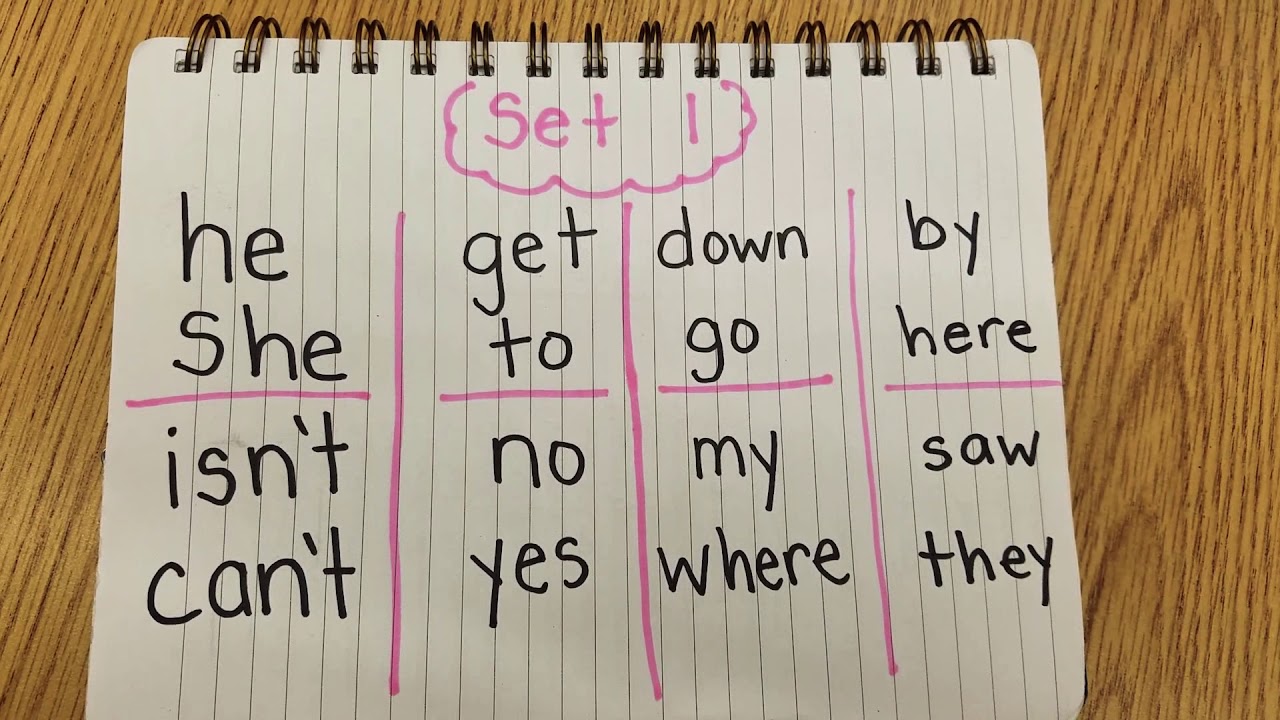 Set 1
he get down by
She to go here
isn't no my saw
can't yes where they